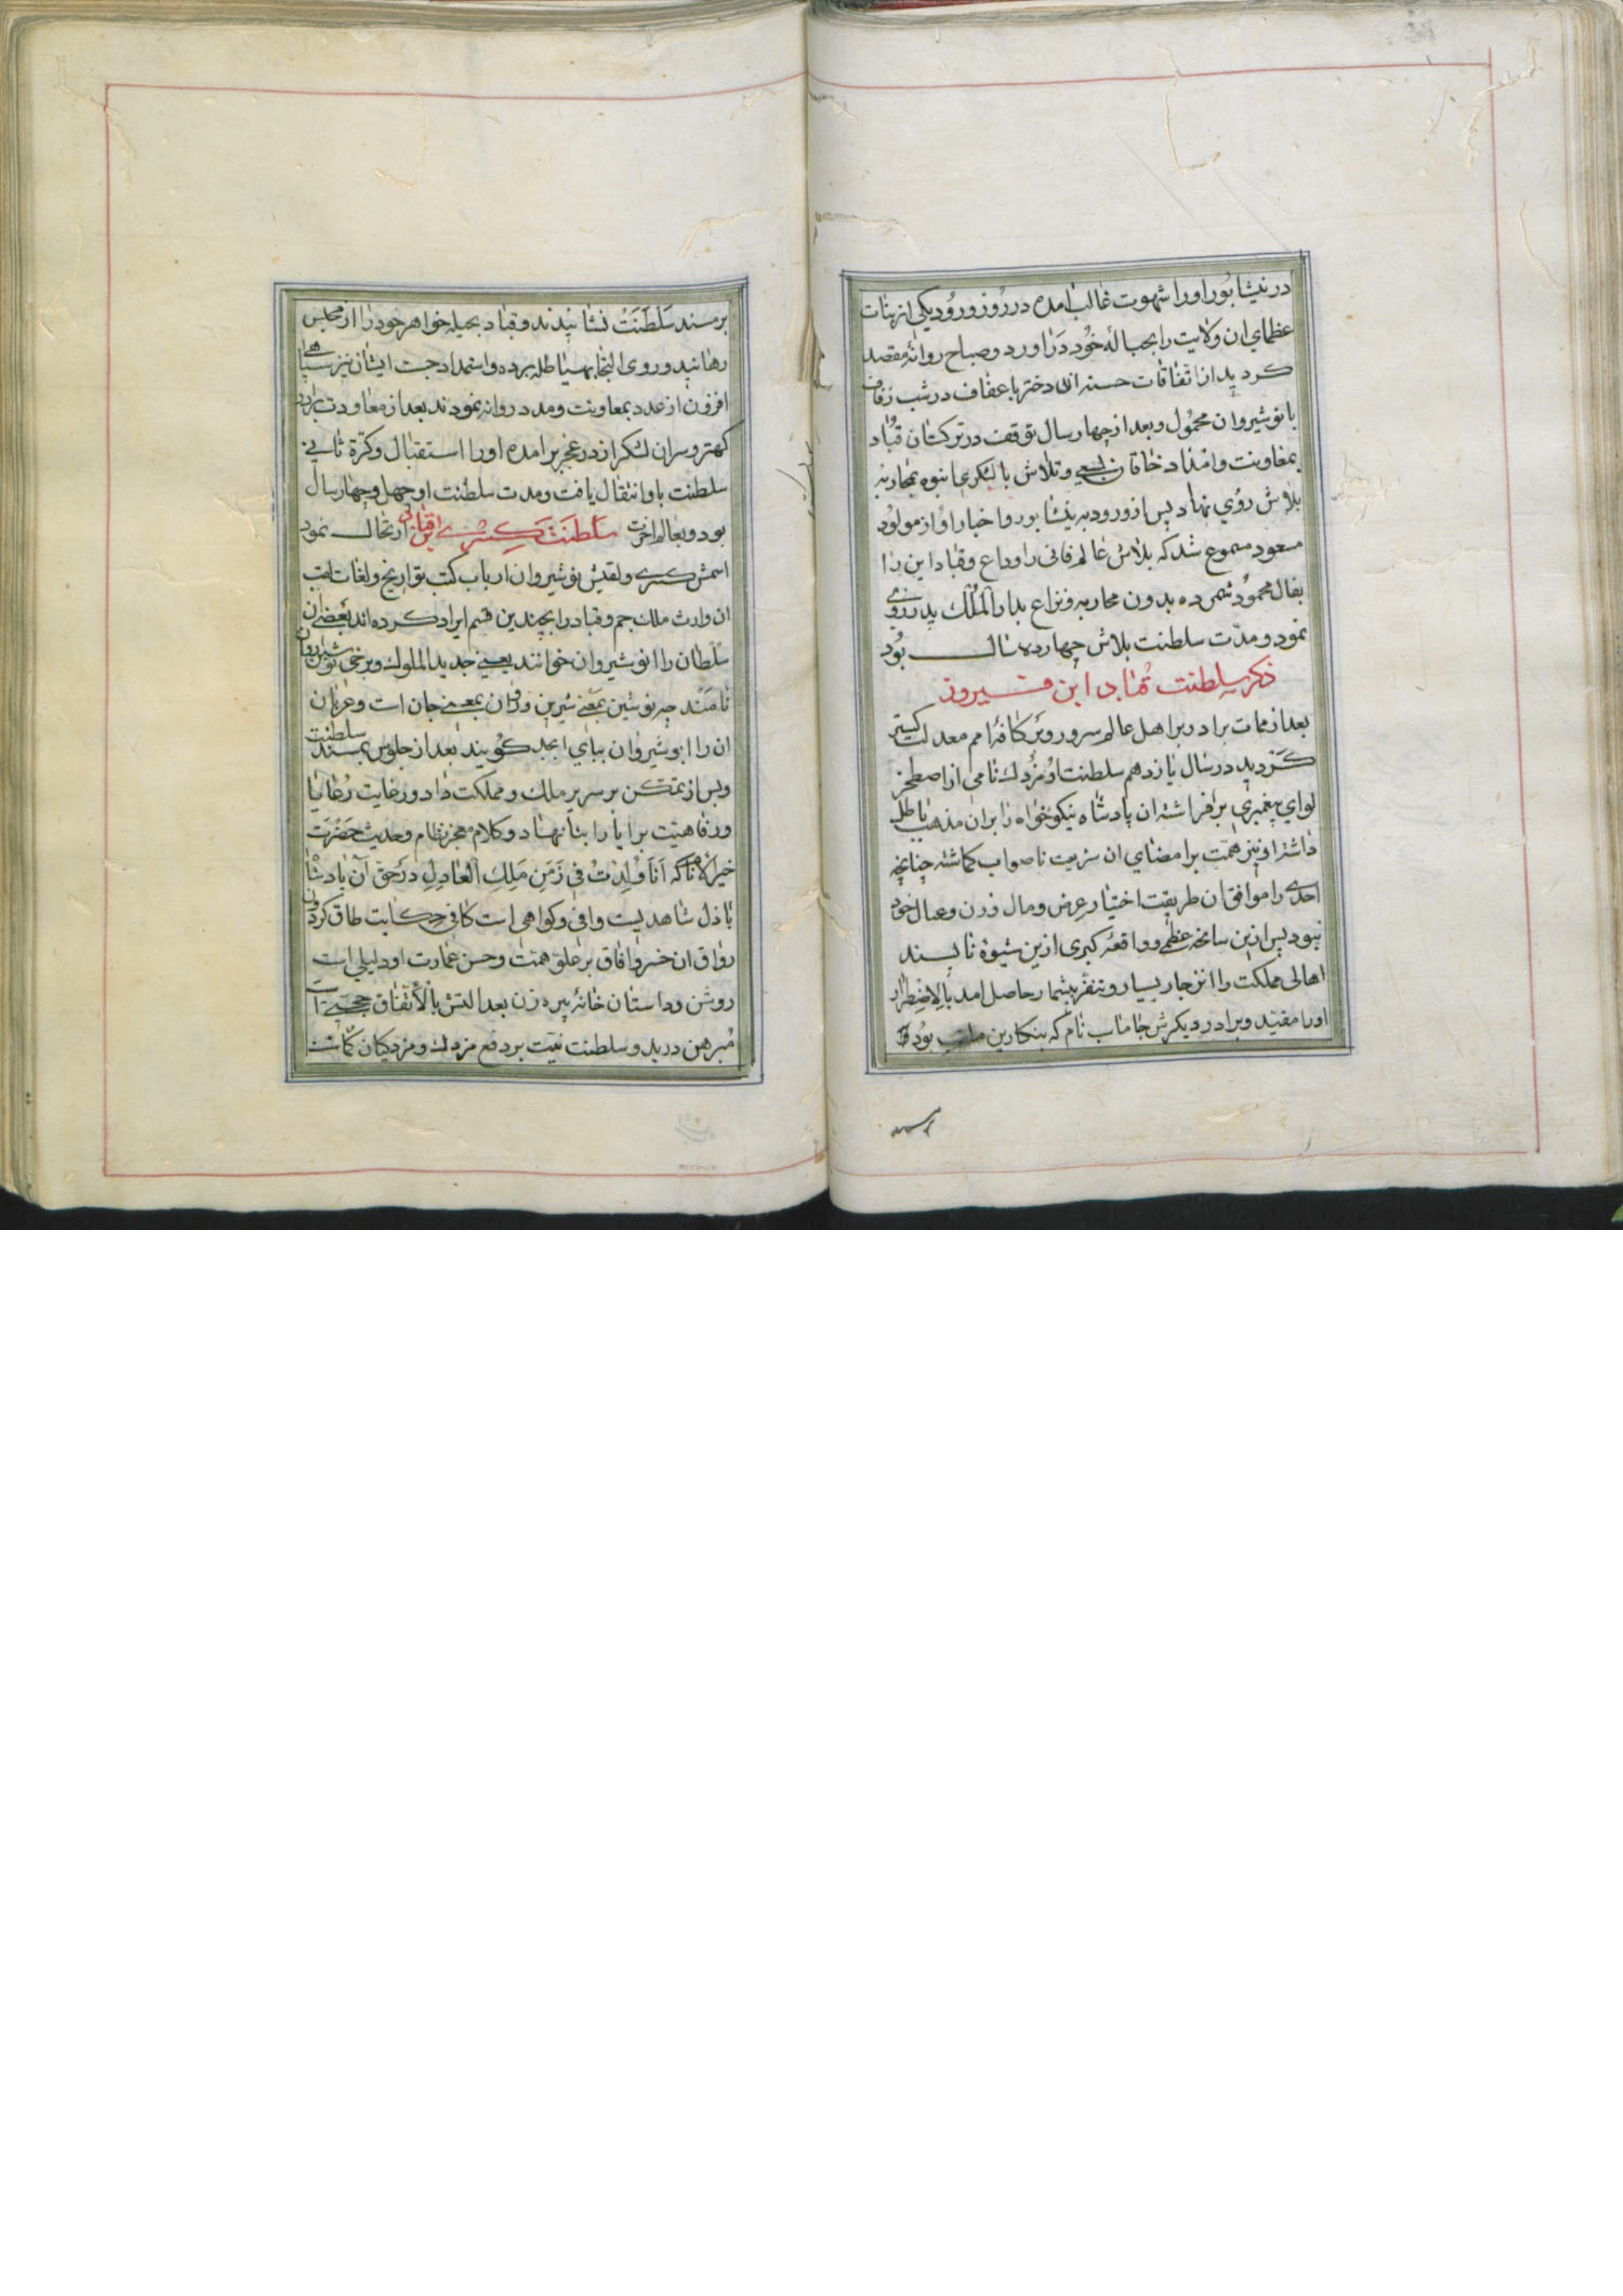 در نیشابور اورا شهوت غالب امده در روز ورود یکی از بنات
عظمای ان ولایت را بحبالهٔ خود دراورد و صباح روانهٔ مقصد
کردید از اتفاقات حسنه ان دختر با عفاف در شب زفاف
بانوشیروان محمول و بعد از چهار سال توقف در ترکستان قباد
بمعاونت و امداد خاقان بسعی و تلاش با لشکری انبوه بمحاربه
بلاش روی نهاد پس از ورود به نیشابور و اخبار او از مولود
مسعود مسموع شد که بلاش عالم فانی را وداع و قباد این را
بفال محمود شمرده بدون محاربه و نزاع بدار الملک پدر روی
نمود و مدّت سلطنت بلاش چهارده سال بود
ذکر سلطنت قباد ابن فیروز
بعد از ممات برادر بر اهل عالم سرور و بر کافهٔ امم معدلت کستر
کردید در سال یازدهم سلطنت او مزدک نامی از اصطخر
لوای پیغمبری برافراشته ان پادشاه نیکوخواه را بران مذهب باطل
داشته او نیز همّت بر امضای ان شریعت ناصواب کماشته چنانچه
احدی را موافق ان طریقت اختیار عرض و مال و زن و عیال خود
نبود پس ازین سانحه عظمی و واقعهٔ کبری ازین شیوهٔ ناپسند
اهالی مملکت را انزجار بسیار و تنفر بیشمار حاصل امد بالاضطرار
اورا مقیّد و برادر دیکرش جاماسب نام که بنکارین ملقب بود
بر مسند
بر مسند سلطنت نشانیدند و قباد بحیله خواهر خود را از محبس
رهانید و روی التجا بهیاطله برده و استمداد جست ایشان نیز سپاهی
افزون از عدد بمعاونت و مدد روانه نمودند بعد از معاودت برادر
کهتر و سران لشکر از در عجز برامده اورا استقبال و کرّة ثانی
سلطنت باو انتقال یافت و مدت سلطنت او چهل و چهار سال
بود و بعالم اخرت ارتحال نمود سلطنت کسری ابن قباد
اسمش کسری و لقبش نوشیروان ارباب کتب تواریخ و لغات لقب
ان وارث ملک جم و قباد را بچندین قسم ایراد کرده اند بعضی ان
سلطان را انوشیروان خوانند یعنی جدید الملوک و برخی نوشین روان
نامند چه نوشین بمعنی شیرین و روان بمعنی جان است و عربان
ان را ابوشیروان ببای ابجد کویند بعد از جلوس بمسند سلطنت
و پس از تمکن بر سریر ملک و مملکت داد و رعایت رعایا
و رفاهیت برایا را بنا نهاد و کلام معجز نظام و حدیث حضرت
خیر الانام که اَنَا وُلِدْتُ فی زَمَنِ مَلِکِ الْعادِلِ در حق آن پادشاه
باذل شاهدیست وافی و کواهی است کافی حکایت طاق کردون
رواق ان خسرو افاق بر علوّ همّت و حسن عمارت او دلیلی است
روشن و داستان خانهٔ پیره زن بعدالتش بالاتفاق حجتی است
مبرهن در بدو سلطنت نیّت بر دفع مزدک و مزدکیان کماشت